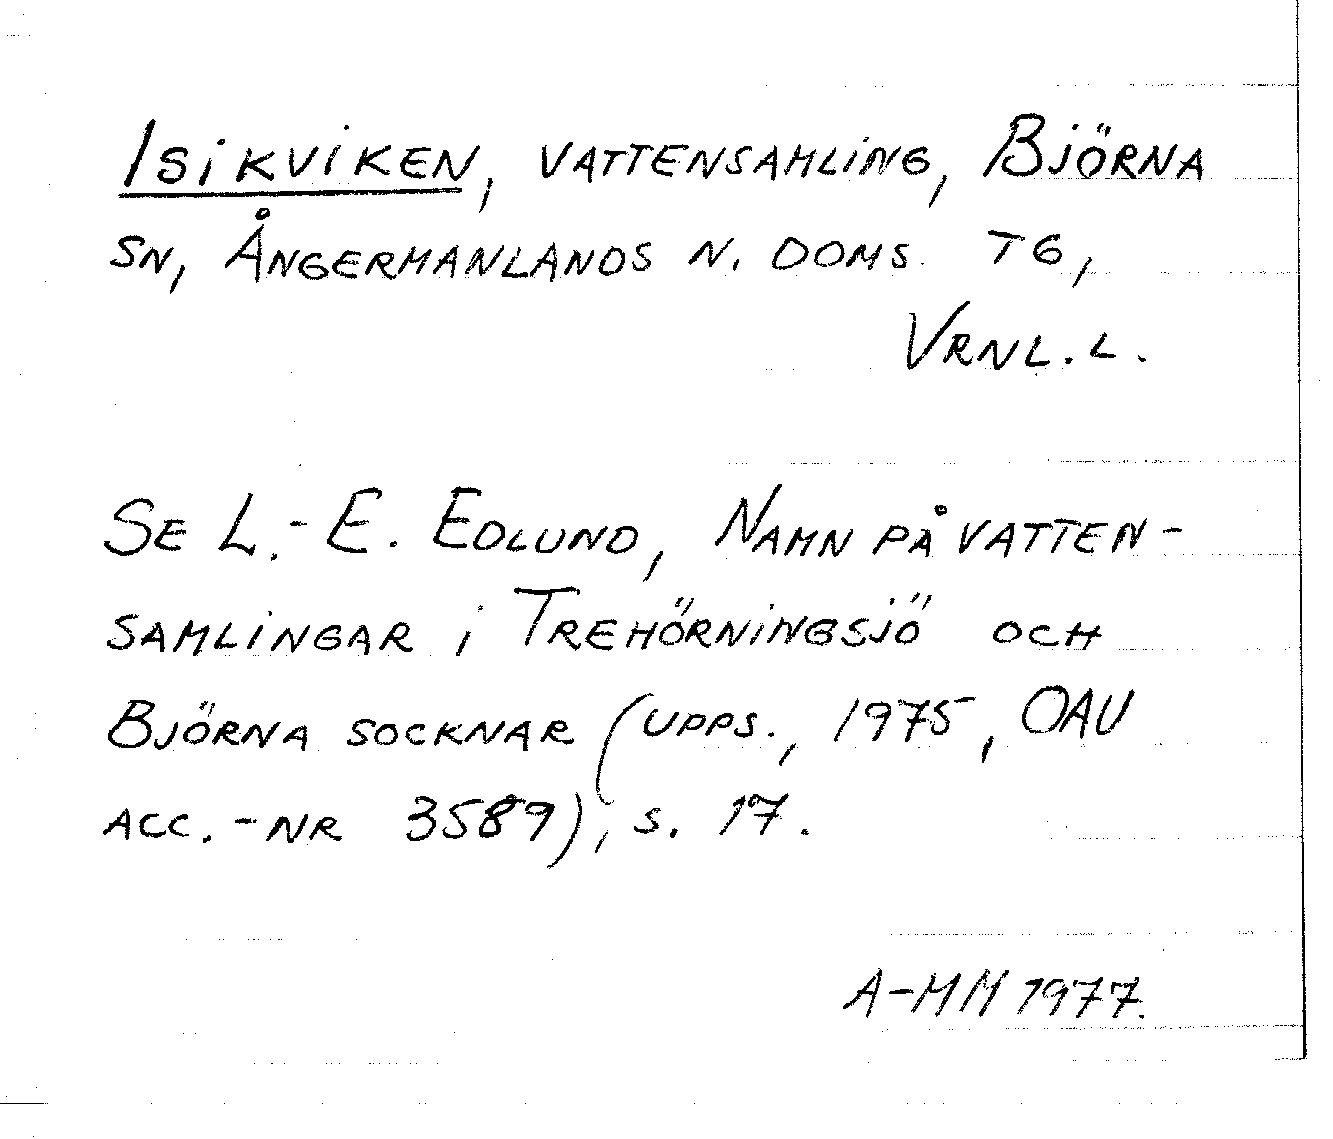 Isikviken, vattensamling, Björna
sn, Ångermanlands n. doms. tg,
Vrnl.l.
Se L.-E. Edlund, Namn på vatten-
samlingar i Trehörningsjö och
Björna socknar (Upps., 1975, OAU
acc.-nr 3589), s. 17.
A-MM 1977.